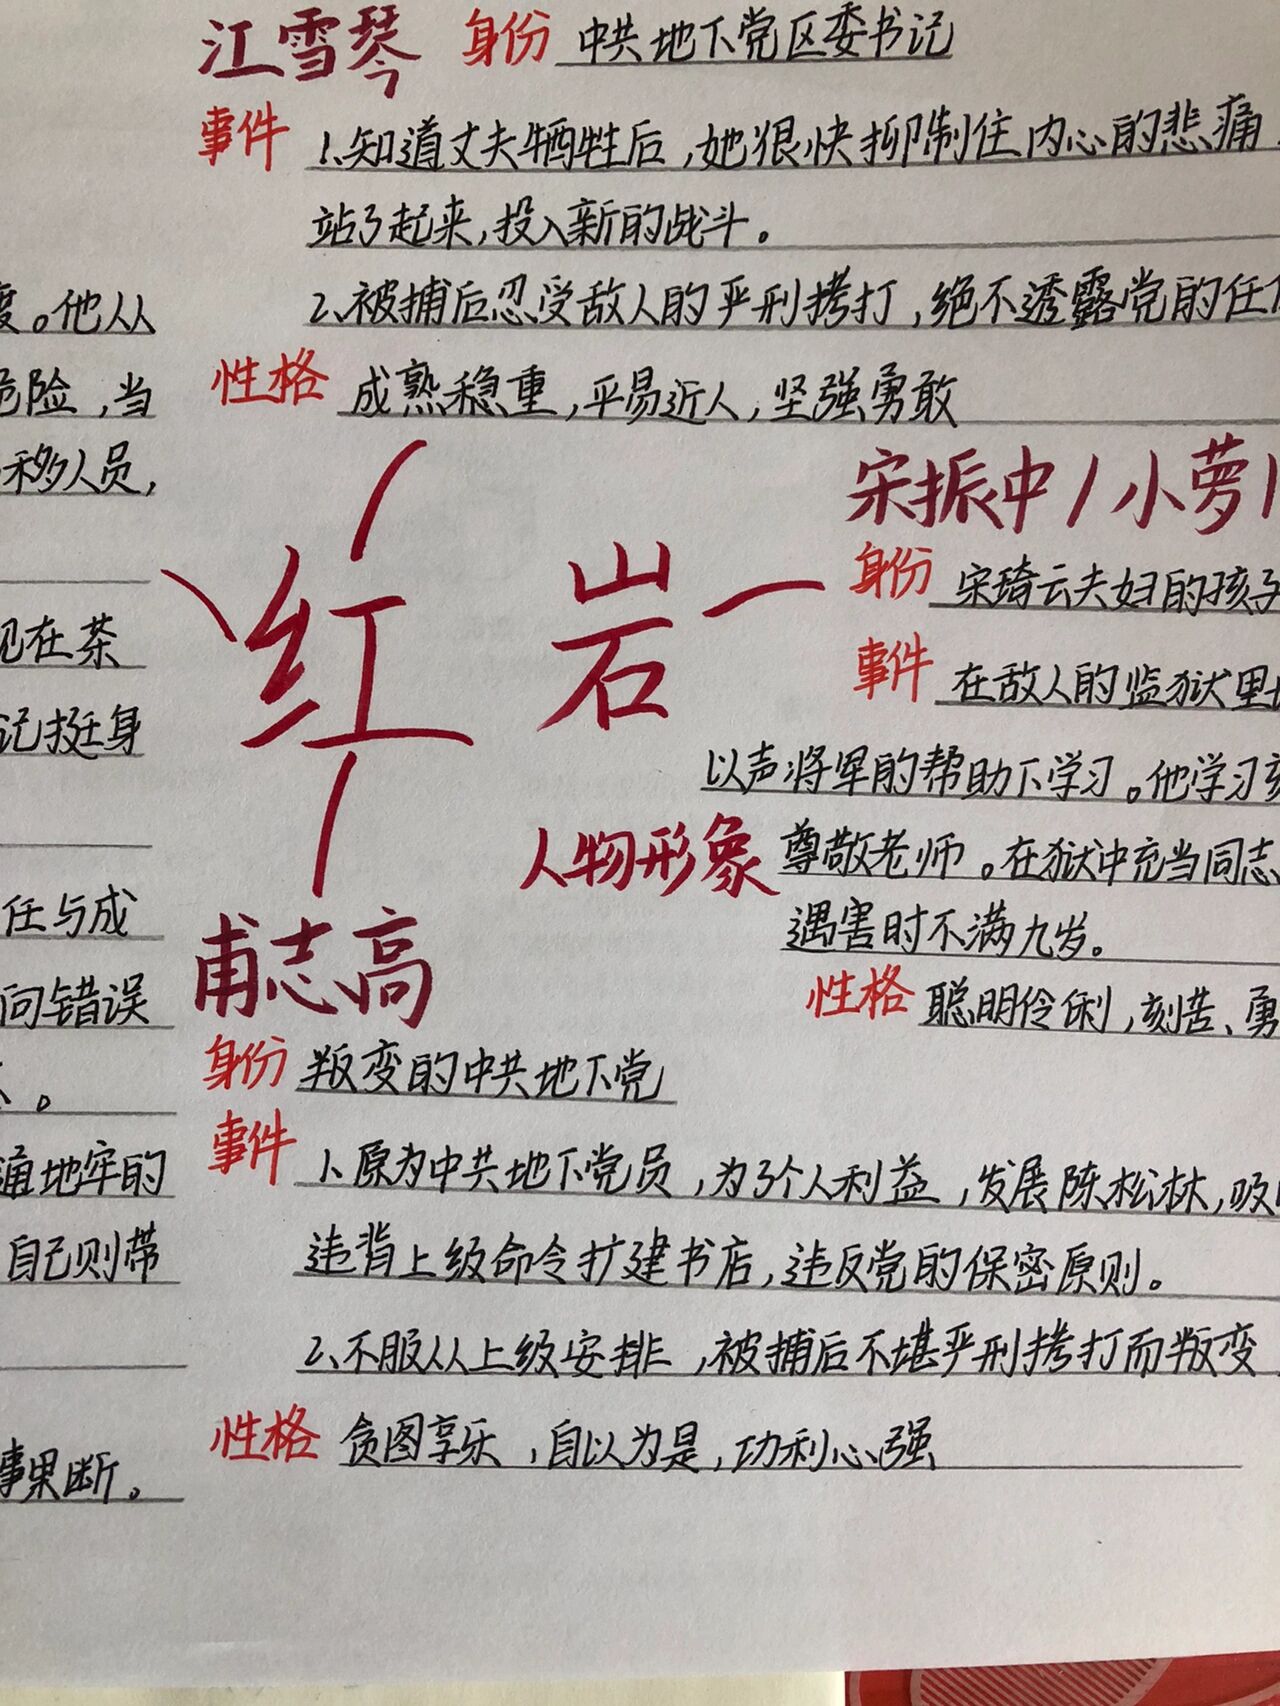 江雪琴 身份 中共地下党区委书记
事件 1、知道丈夫牺牲后，她很快抑制住内心的悲痛，
站了起来，投入新的战斗。
2、被捕后忍受敌人的严刑拷打，绝不透露党的任
性格 成熟稳重，平易近人，坚强勇敢
。他从
危险，当
移人员，
在茶
记挺身
任与成
问错误
。
通地牢的
自己则带
事果断。
红岩
人物形象
宋振中/小萝
身份 宋琦云夫妇的孩子
事件 在敌人的监狱里
以声将军的帮助下学习。他学习刻
尊敬老师。在狱中充当同志
遇害时不满九岁。
性格 聪明伶俐，刻苦、勇
甫志高
身份 叛变的中共地下党
事件 1、原为中共地下党员，为了个人利益，发展陈松林，吸
违背上级命令扩建书店，违反党的保密原则。
2、不服从上级安排，被捕后不堪严刑拷打而叛变，
性格 贪图享乐，自以为是，功利心强